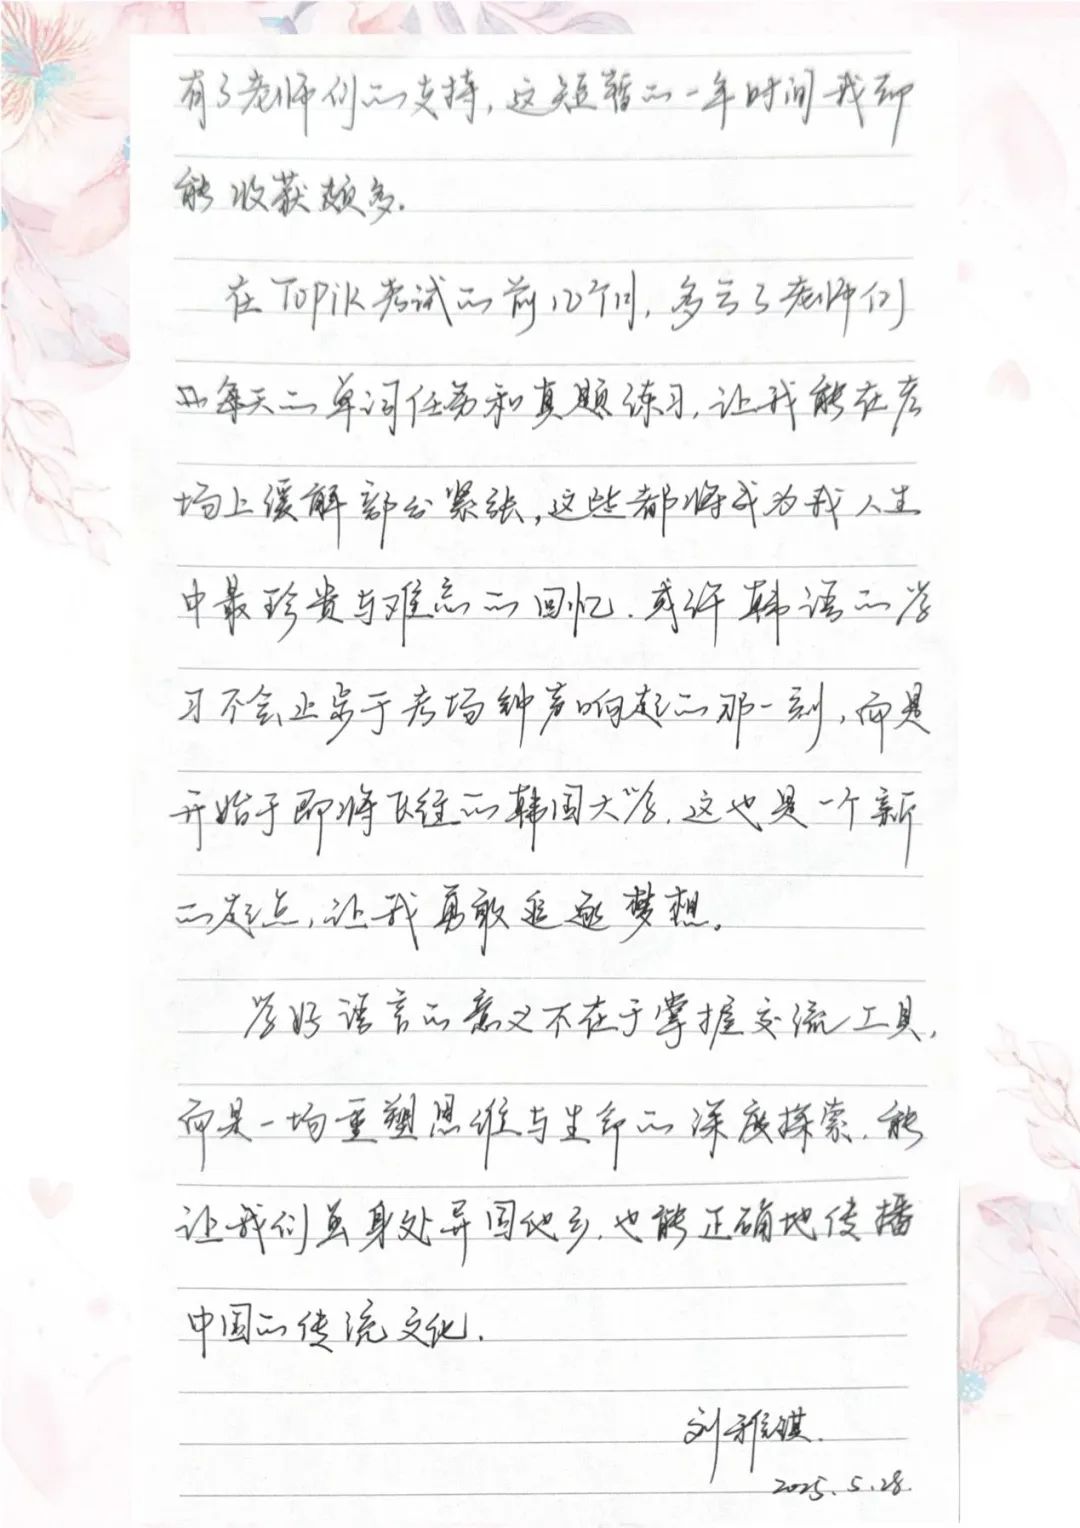 有了老师们的支持，这短暂的一年时间我却
能收获颇多.
在Topik考试的前12个月，多亏了老师们
的每天的单词任务和真题练习，让我能在考
场上缓解部分紧张，这些都将成为我人生
中最珍贵与难忘的回忆.或许韩语的学
习不会止步于考场钟声响起的那一刻，而是
开始于即将飞往的韩国大学.这也是一个新
的起点，让我勇敢追逐梦想。
学好语言的意义不在于掌握交流工具，
而是一场重塑思维与生命的深度探索.能
让我们虽身处异国他乡.也能正确地传播
中国的传统文化.
刘雅祺.
2025.5.28.